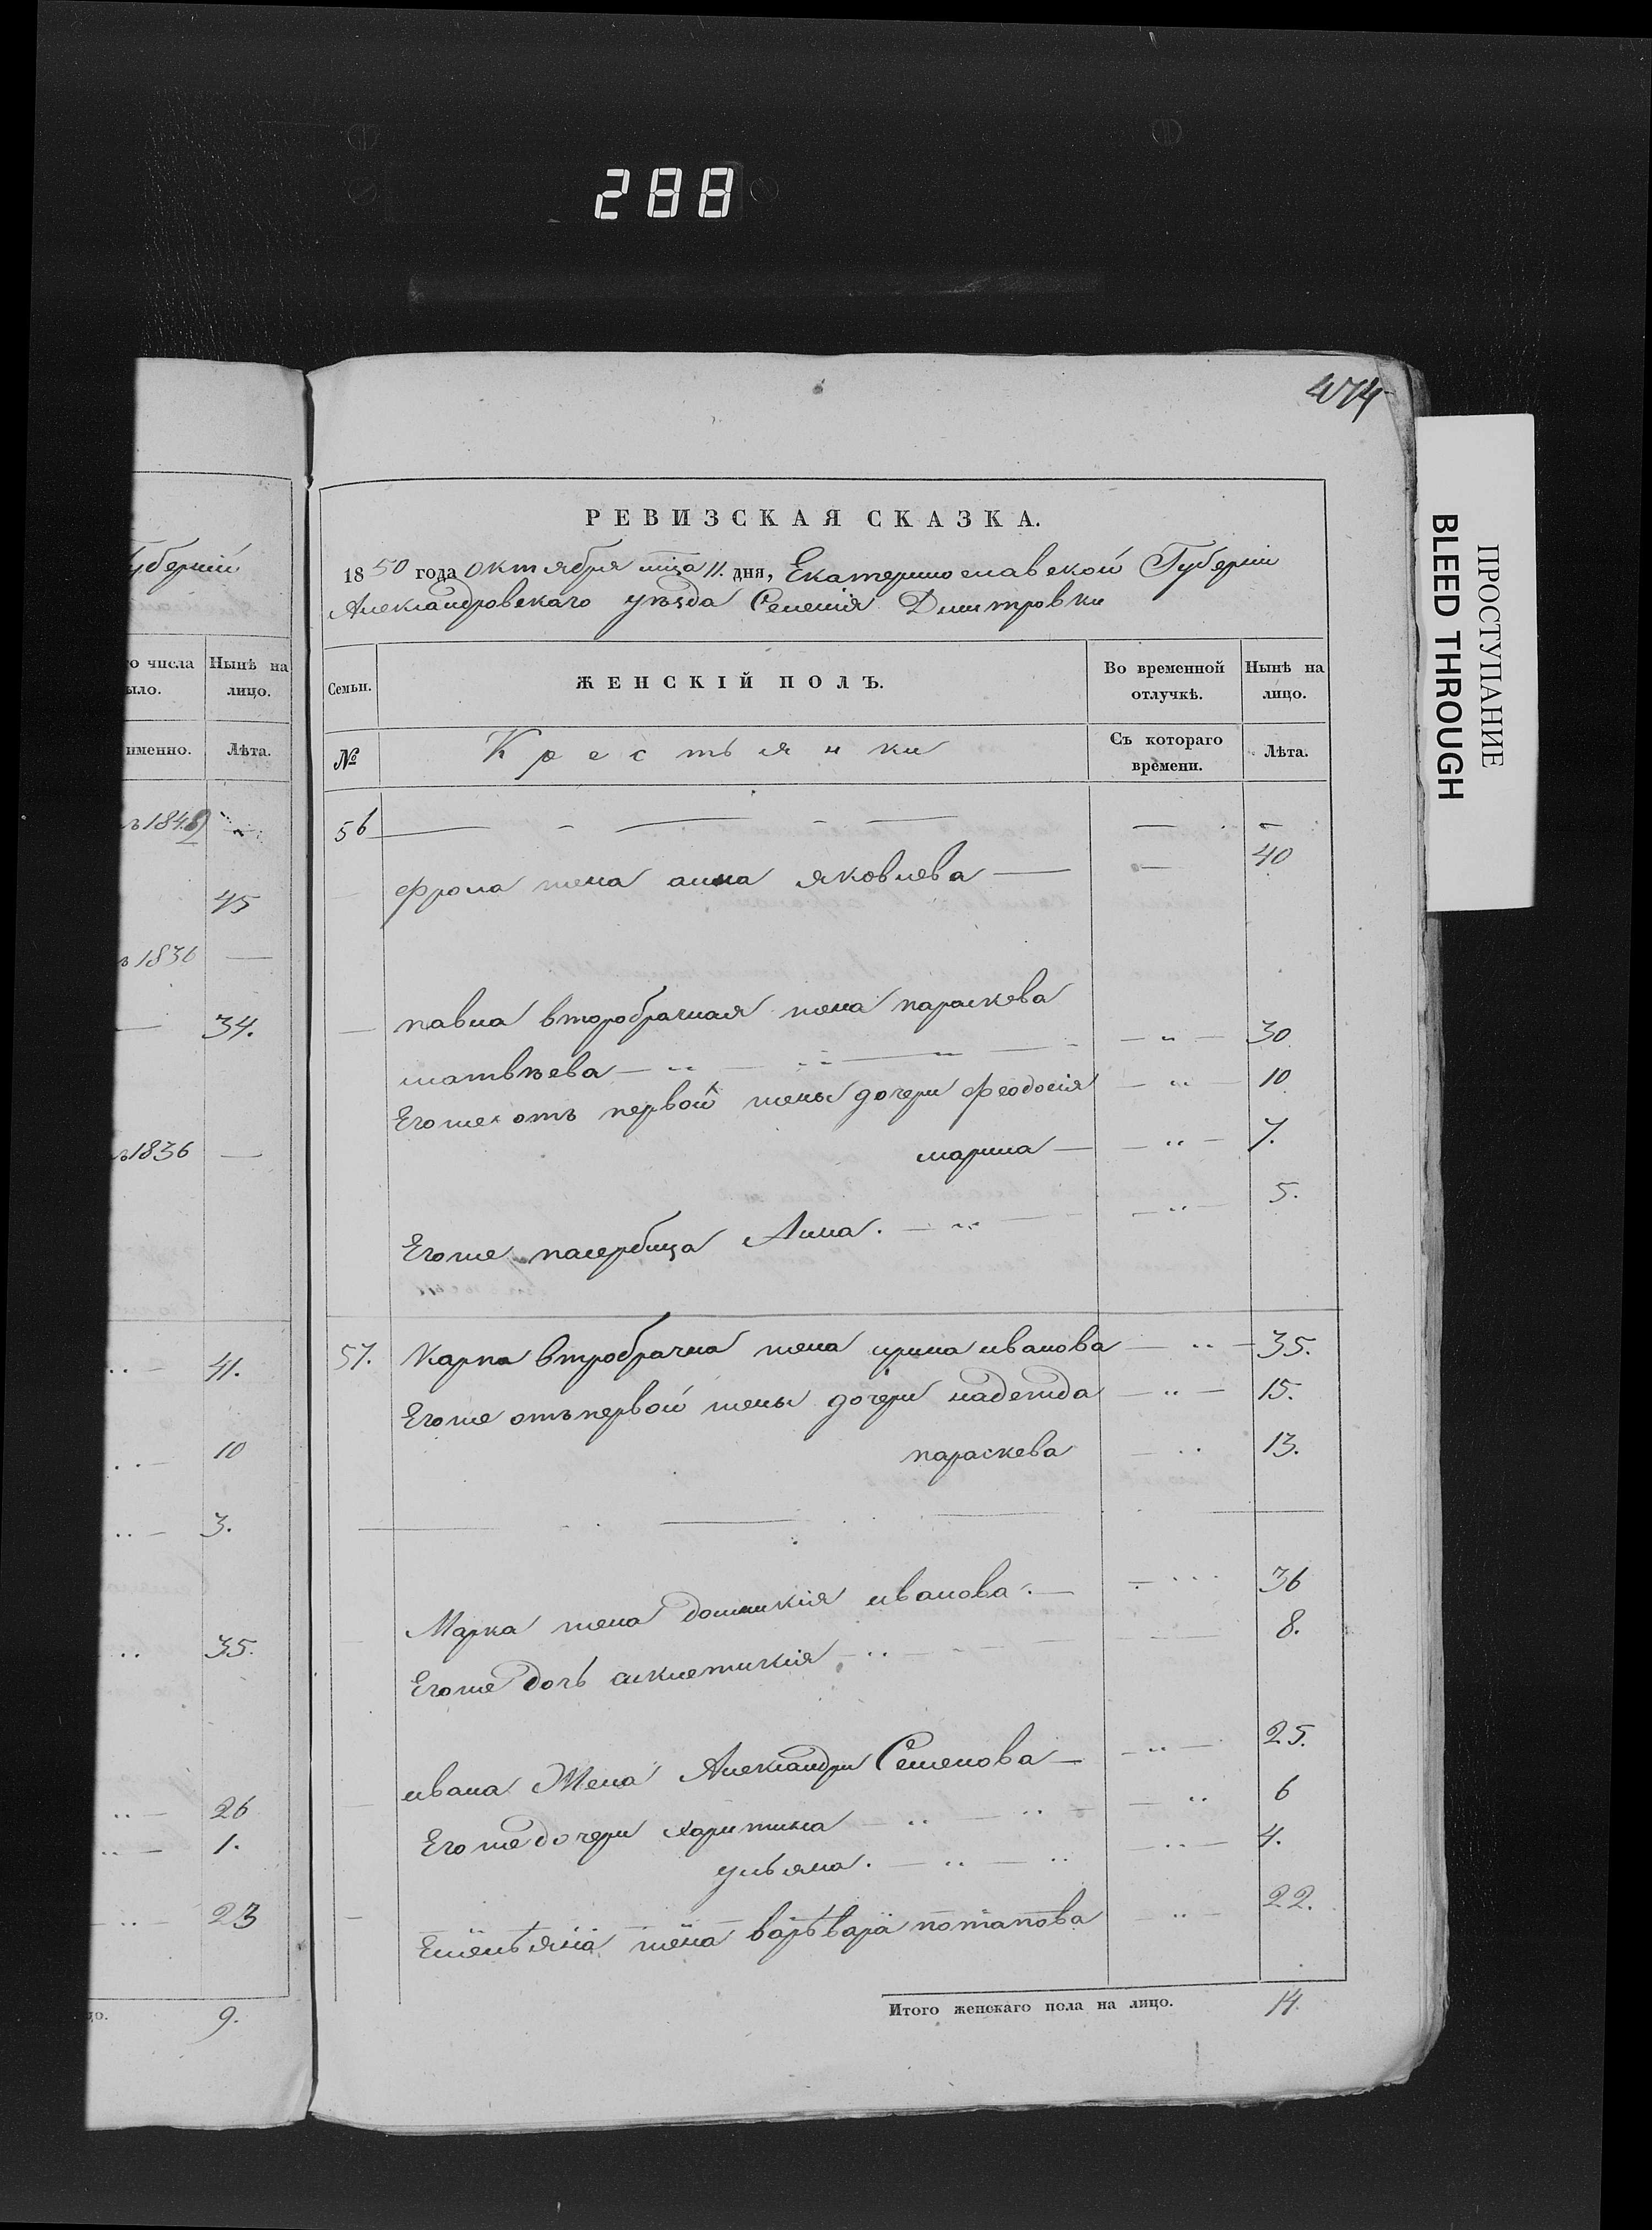 288
474
РЕВИЗСКАЯ СКАЗКА.
1850 года октября мца 11. дня, Екатеринославской Губерніи
Александровскаго уѣзда Селенія Дмитровки
Губерніи
го числа
было.
Нынѣ на
лицо.
именно.
Лѣта.
Семьи.
ЖЕНСКІЙ ПОЛЪ.
Во временной
отлучкѣ.
Нынѣ на
лицо.
№
Крестьянки
Съ котораго
времени.
Лѣта.
45
ъ 1836 —
— 34.
ъ 1836 —
41.
10
3.
35.
26
1.
23
9.
56 — — — —
Фрола жена анна яковлева — — 40
павла второбрачная жена параскева
матвѣева — — 30
Егоже отъ первой жены дочери феодосія — 10
марина — — 7.
Егоже пасербица Анна. — 5.
57. Карпа втробрачна жена ирина иванова — 35.
Егоже отъ первой жены дочери надежда — 15.
параскева — 13.
Марка жена домникія иванова. — 36
Егоже дочь анклитикія — 8.
ивана Жена Александри Семенова — 25.
Егоже дочери харитина — 6
ульяна. — 4.
Емельяна жена варьвара потапова — 22.
Итого женскаго пола на лицо. 14.
ПРОСТУПАНИЕ
BLEED THROUGH